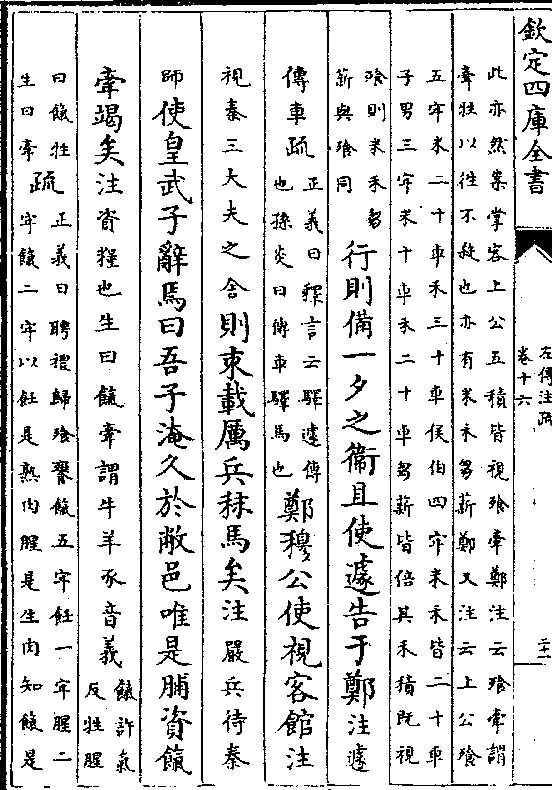 欽定四庫全書
左傳注疏
卷十六
此亦然案掌客上公五積皆視飱牽鄭注云飱牽謂
牽牲以往不殺也亦有米禾芻薪鄭又注云上公飱
五牢米二十車禾三十車侯伯四牢米禾皆二十車
子男三牢米十車禾二十車芻薪皆倍其禾積既視
飱則米禾芻
薪與飱同
行則備一夕之衞且使遽告于鄭注遽
傳車疏
正義曰釋言云驛遽傳
也孫炎曰傳車驛馬也
鄭穆公使視客館注
視秦三大夫之舍則束載厲兵秣馬矣注嚴兵待秦
師使皇武子辭焉曰吾子淹久於敝邑唯是脯資餼
牽竭矣注資糧也生曰餼牽謂牛羊豕音義
餼許氣
反牲腥
曰餼牲
生曰牽
疏
正義曰聘禮歸飱饔餼五牢飪一牢腥二
牢餼二牢以飪是熟肉腥是生肉知餼是